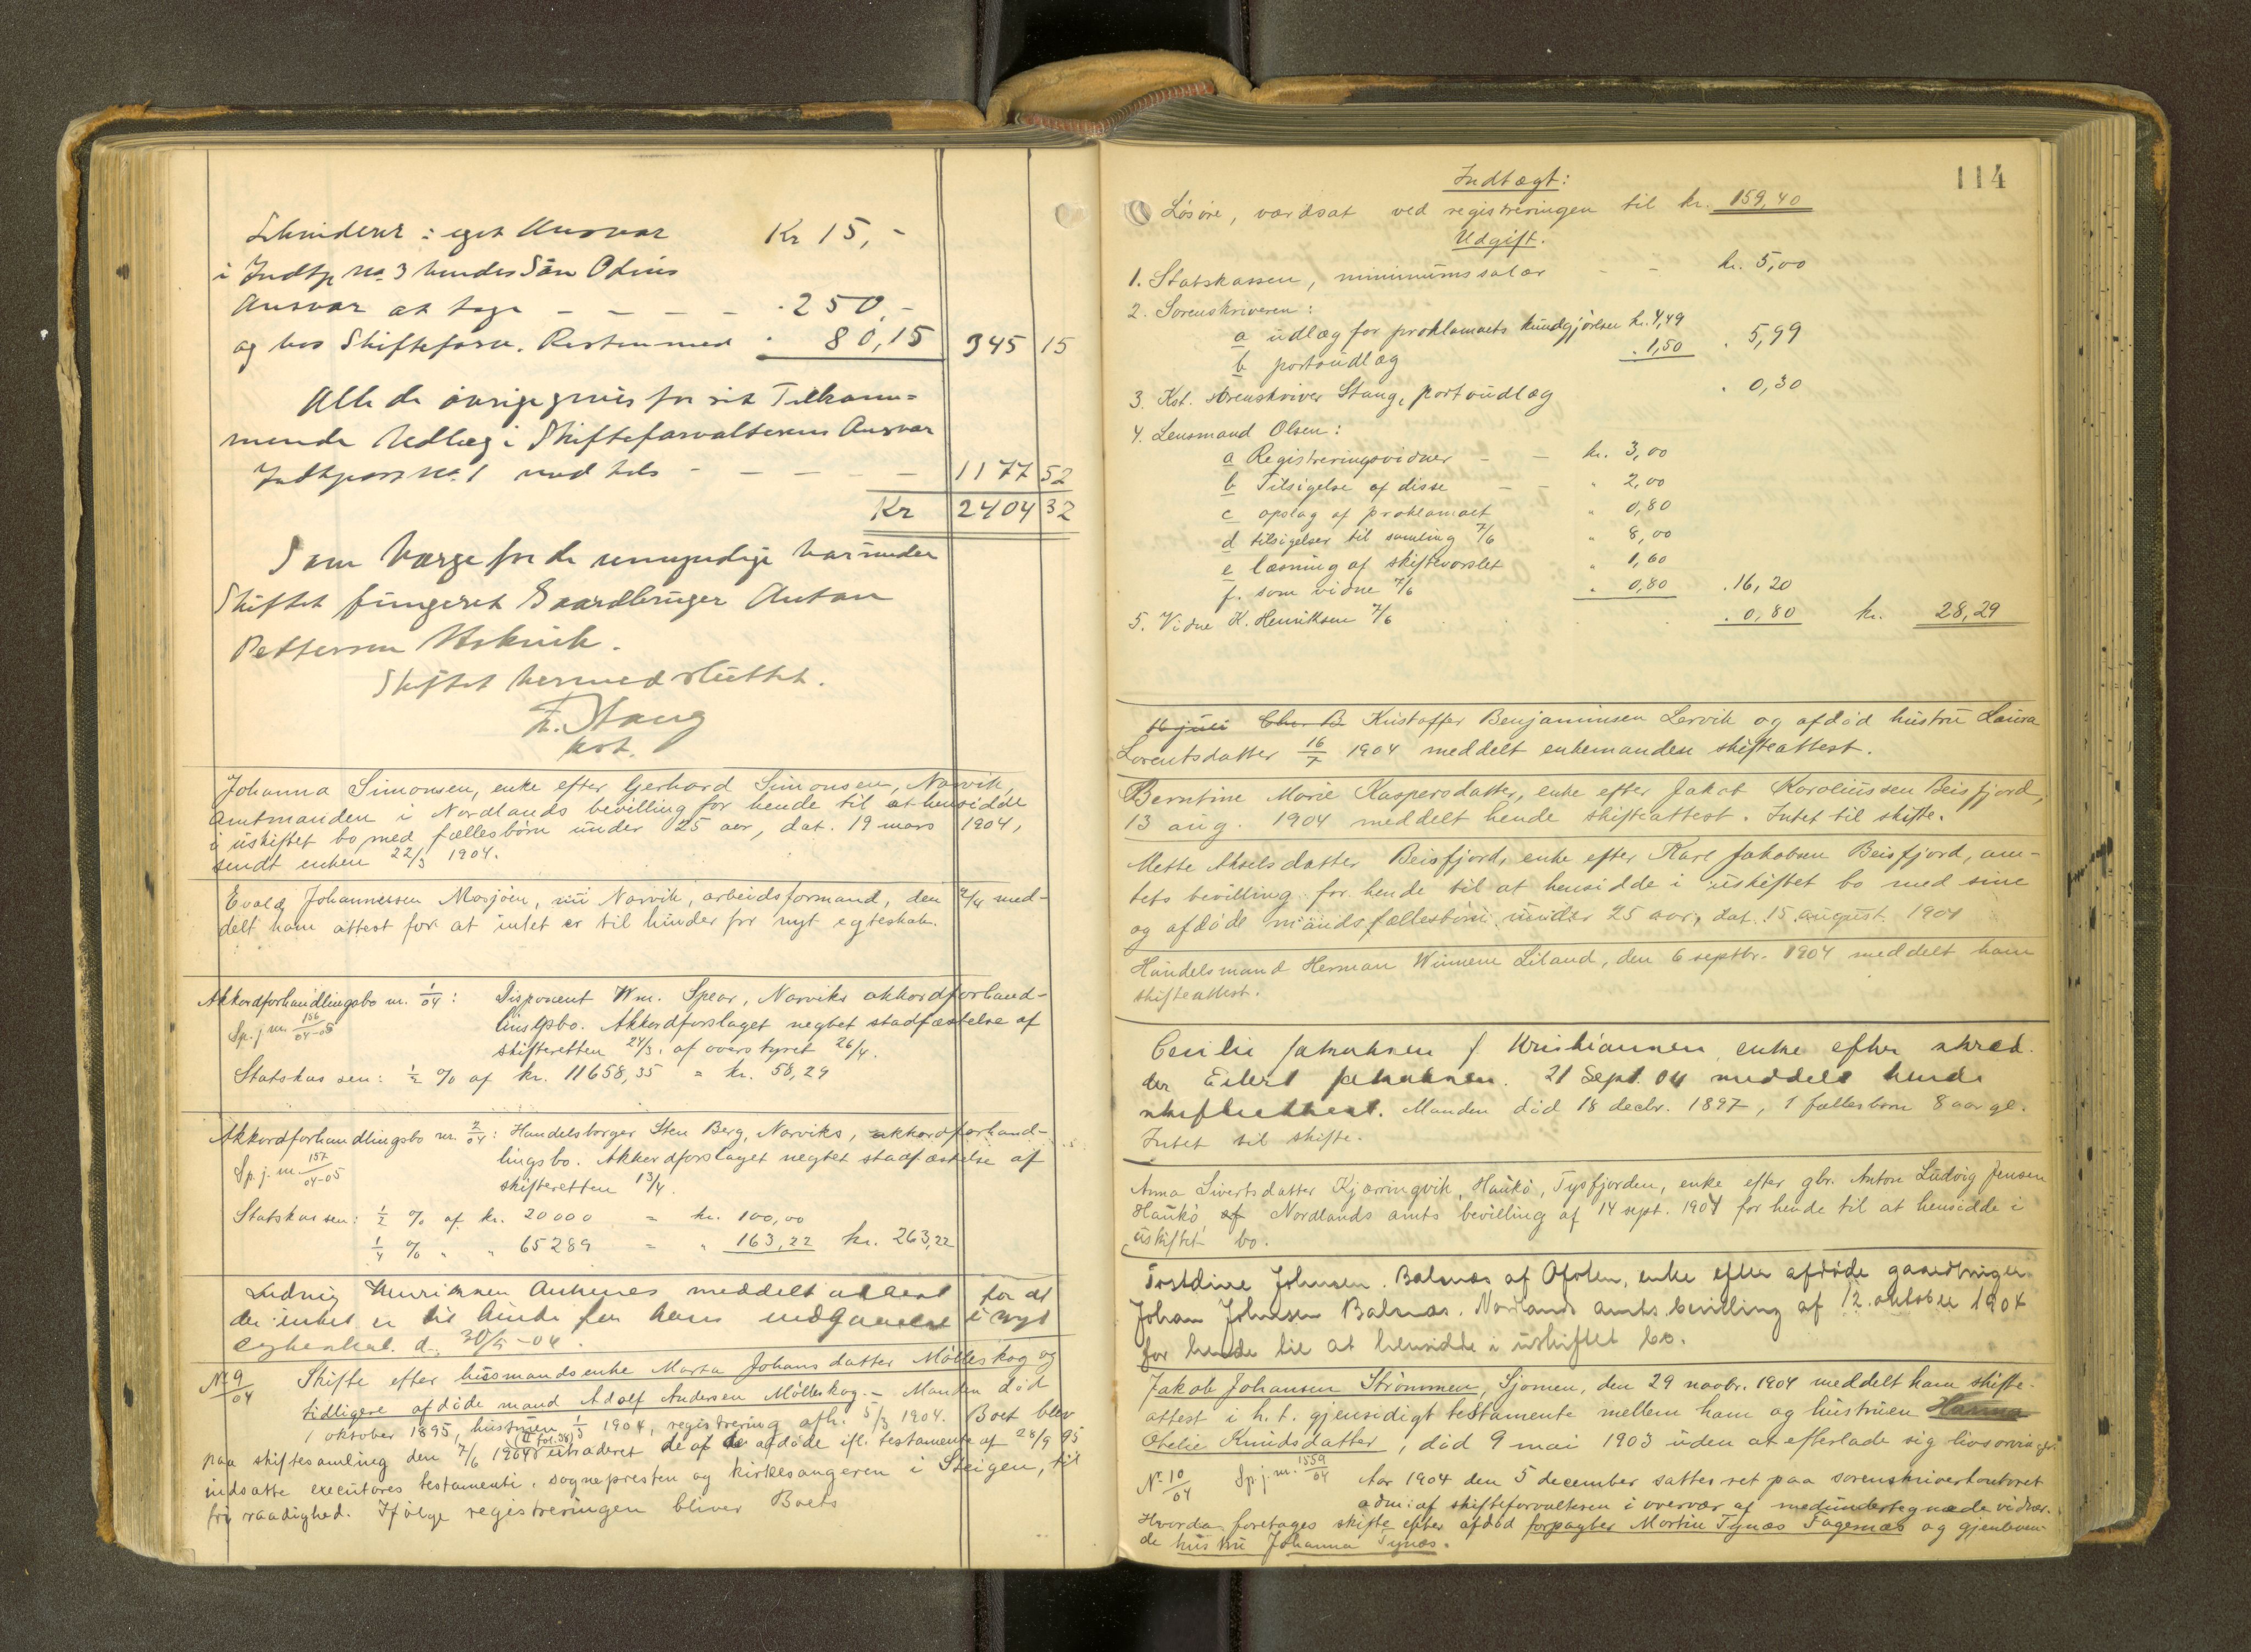 i eget Ansvar Kr 15,-
i Indtp No 3 hendes Søn Odins
Ansvar at tage - - - - - . 250,-
og hos Skifteforv. Resten med . 80,15 345 15
Alle de øvrige gives for sit Tilkom=
mende Udlæg i Skifteforvalterens Ansvar
Indtpost No. 1 med tils - - - - - 1177 52
Kr 2404 32
Som Værge for de umyndige har under
Skiftet fungeret Gaardbruger Anton
Pettersen
Skiftet hermed sluttet.
F. Stang
kst.
Johanna Simonsen, enke efter Gerhard Simonsen, Narvik,
Amtmanden i Nordlands bevilling for hende til at hensidde
i uskiftet bo med fællesbørn under 25 aar, dat. 19 mars 1904,
sendt enken 22/3 1904.
Evald Johannessen Mosjøen, nu Narvik, arbeidsformand, den 2/4 med-
delt ham attest for at intet er til hinder for nyt egteskab.
Akkordforhandlingsbo nr. 1/04: Disponent Wm. Spear, Narviks akkordforhand-
lingsbo. Akkordforslaget negtet stadfæstelse af
Sp.j.nr. 156/04-05
skifteretten 24/3, af overstyret 26/4.
Statskassen: 1/2 % af kr. 11658,35 = kr. 58,29
Akkordforhandlingsbo nr. 2/04: Handelsborger Sten Berg, Narviks, akkordforhand-
lingsbo. Akkordforslaget negtet stadfæstelse af
Sp.j.nr. 157/04-05
skifteretten 13/4.
Statskassen: 1/2 % af kr. 20000 = kr. 100,00
1/4 % " " 65289 = " 163,22 kr. 263,22
Ludvig Henriksen Ankenes meddelt attest for at
der intet er til hinder for hans indgaaelse i nyt
egteskab. d. 30/5-04.
No 9/04 Skifte efter husmandsenke Marta Johansdatter Mølleskog og
tidligere afdøde mand Adolf Andersen Mølleskog. - Manden død
1 oktober 1895, hustruen 1/3 1904, registrering afh. 5/3 1904. Boet blev
paa skiftesamling den 7/6 1904 (II fol. 38) extraderet de af de afdøde ifl. testamente af 28/9 95
indsatte executores testamenti, sognepresten og kirkesangeren i Steigen, til
fri raadighed. Ifølge registreringen bliver Boets
114
Indtægt:
Løsøre, værdsat ved registreringen til kr. 159,40
Udgift.
1. Statskassen, minimumssalær - - kr. 5,00
2. Sorenskriveren:
a udlæg for proklamaets kundgjørelse kr. 4,49
b portoudlæg . 1,50 . 5,99
3. Kst. sorenskriver Stang, portoudlæg . 0,30
4. Lensmand Olsen:
a Registreringsvidner - - kr. 3,00
b Tilsigelse af disse - - " 2,00
c opslag af proklamaet " 0,80
d tilsigelser til samling 7/6 " 8,00
e læsning af skiftevarslet " 1,60
f. som vidne 7/6 " 0,80 . 16,20
5. Vidne K. Henriksen 7/6 . 0,80 kr. 28,29
16 juli Chr. B. Kristoffer Benjaminsen Lervik og afdød hustru Laura
Lorentsdatter 16/7 1904 meddelt enkemanden skifteattest.
Berntine Marie Kaspersdatter, enke efter Jakob Karoliussen Beisfjord,
13 aug. 1904 meddelt hende skifteattest. Intet til skifte.
Mette Akselsdatter Beisfjord, enke efter Karl Jakobsen Beisfjord, am-
tets bevilling for hende til at hensidde i uskiftet bo med sine
og afdøde mands fællesbørn under 25 aar, dat. 15 august 1904
Handelsmand Herman Liland, den 6 septbr. 1904 meddelt ham
skifteattest.
Cecilie Jakobsen f Kristiansen, enke efter skred-
der Eilert Jakobsen. 21 Sept. 04 meddelt hende
skifteattest. Manden død 18 decbr. 1897, 1 fællesbarn 8 aar gl.
Intet til skifte.
Anna Sivertsdatter Kjærringvik, Haukø, Tysfjorden, enke efter gbr. Anton Ludvig Jensen
Haukø, af Nordlands amts bevilling af 14 sept. 1904 for hende til at hensidde i
uskiftet bo.
Tostdine Johnsen, Balsnes af Ofoten, enke efter afdøde gaardbruger
Johan Johnsen Balsnæs. Nordlands amts bevilling af 12. oktober 1904
for hende til at hensidde i uskiftet bo.
Jakob Johansen Strømmen, Sjomen, den 29 novbr. 1904 meddelt ham skifte-
attest i h. t. gjensidigt testamente mellem ham og hustruen Hanna
Ovelie Knudsdatter, død 9 mai 1903 uden at efterlade sig livsarvinger.
No 10/04 Sp.j.nr. 1559/04 Aar 1904 den 5 december sattes ret paa sorenskriverkontoret
adm: af skifteforvalteren i overvær af medundertegnede vidner.
Hvorda foretages skifte efter afdød forpagter Martin Tynæs Fagernæs og gjenleven-
de hustru Johanna Tynæs.